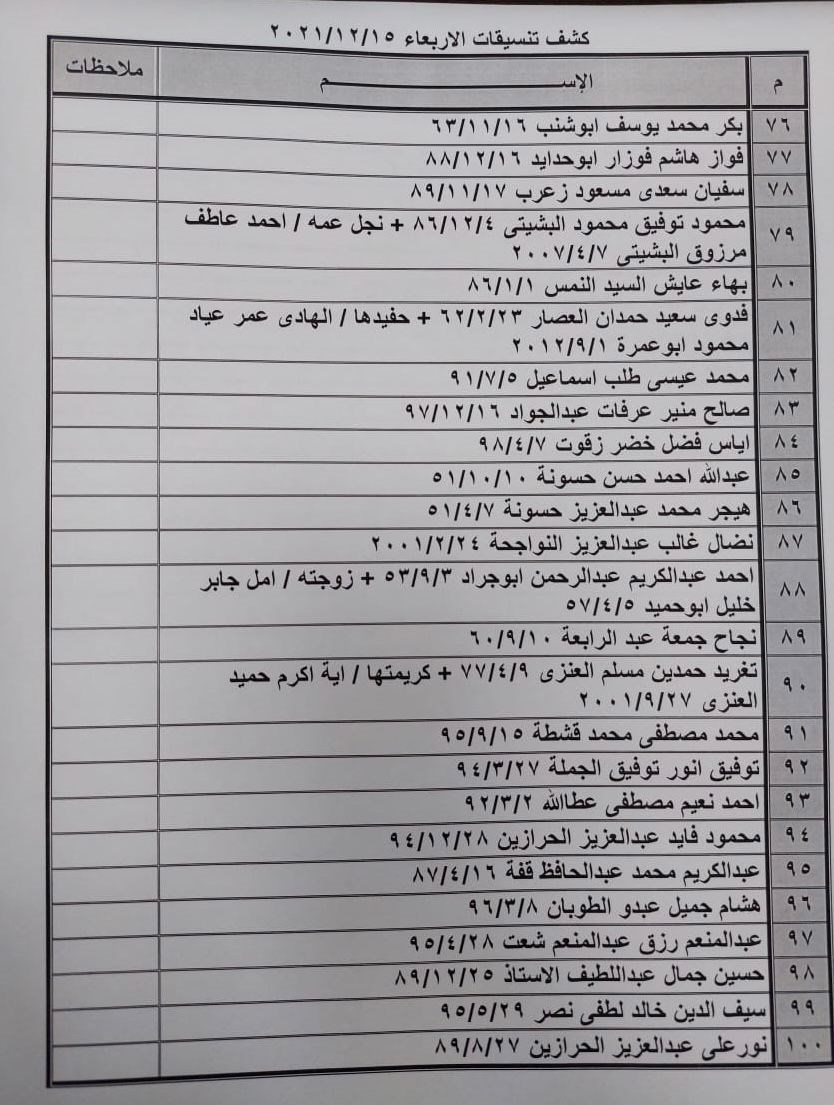 كشف تنسيقات الاربعاء ٢٠٢١/١٢/١٥
م الإســـــــم ملاحظات
٧٦ بكر محمد يوسف ابوشنب ٦٣/١١/١٦
٧٧ فواز هاشم فوزار ابوحدايد ٨٨/١٢/١٦
٧٨ سفيان سعدى مسعود زعرب ٨٩/١١/١٧
٧٩ محمود توفيق محمود البشيتى ٨٦/١٢/٤ + نجل عمه / احمد عاطف
مرزوق البشيتى ٢٠٠٧/٤/٧
٨٠ بهاء عايش السيد النمس ٨٦/١/١
٨١ فدوى سعيد حمدان العصار ٦٢/٢/٢٣ + حفيدها / الهادى عمر عياد
محمود ابوعمرة ٢٠١٢/٩/١
٨٢ محمد عيسى طلب اسماعيل ٩١/٧/٥
٨٣ صالح منير عرفات عبدالجواد ٩٧/١٢/١٦
٨٤ اياس فضل خضر زقوت ٩٨/٤/٧
٨٥ عبدالله احمد حسن حسونة ٥١/١٠/١٠
٨٦ هيجر محمد عبدالعزيز حسونة ٥١/٤/٧
٨٧ نضال غالب عبدالعزيز النواجحة ٢٠٠١/٢/٢٤
٨٨ احمد عبدالكريم عبدالرحمن ابوجراد ٥٣/٩/٣ + زوجته / امل جابر
خليل ابوحميد ٥٧/٤/٥
٨٩ نجاح جمعة عبد الرابعة ٦٠/٩/١٠
٩٠ تغريد حمدين مسلم العنزى ٧٧/٤/٩ + كريمتها / اية اكرم حميد
العنزى ٢٠٠١/٩/٢٧
٩١ محمد مصطفى محمد قشطة ٩٥/٩/١٥
٩٢ توفيق انور توفيق الجملة ٩٤/٣/٢٧
٩٣ احمد نعيم مصطفى عطاالله ٩٢/٣/٢
٩٤ محمود فايد عبدالعزيز الحرازين ٩٤/١٢/٢٨
٩٥ عبدالكريم محمد عبدالحافظ قفة ٨٧/٤/١٦
٩٦ هشام جميل عبدو الطوبان ٩٦/٣/٨
٩٧ عبدالمنعم رزق عبدالمنعم شعت ٩٥/٤/٢٨
٩٨ حسين جمال عبداللطيف الاستاذ ٨٩/١٢/٢٥
٩٩ سيف الدين خالد لطفى نصر ٩٥/٥/٢٩
١٠٠ نورعلى عبدالعزيز الحرازين ٨٩/٨/٢٧